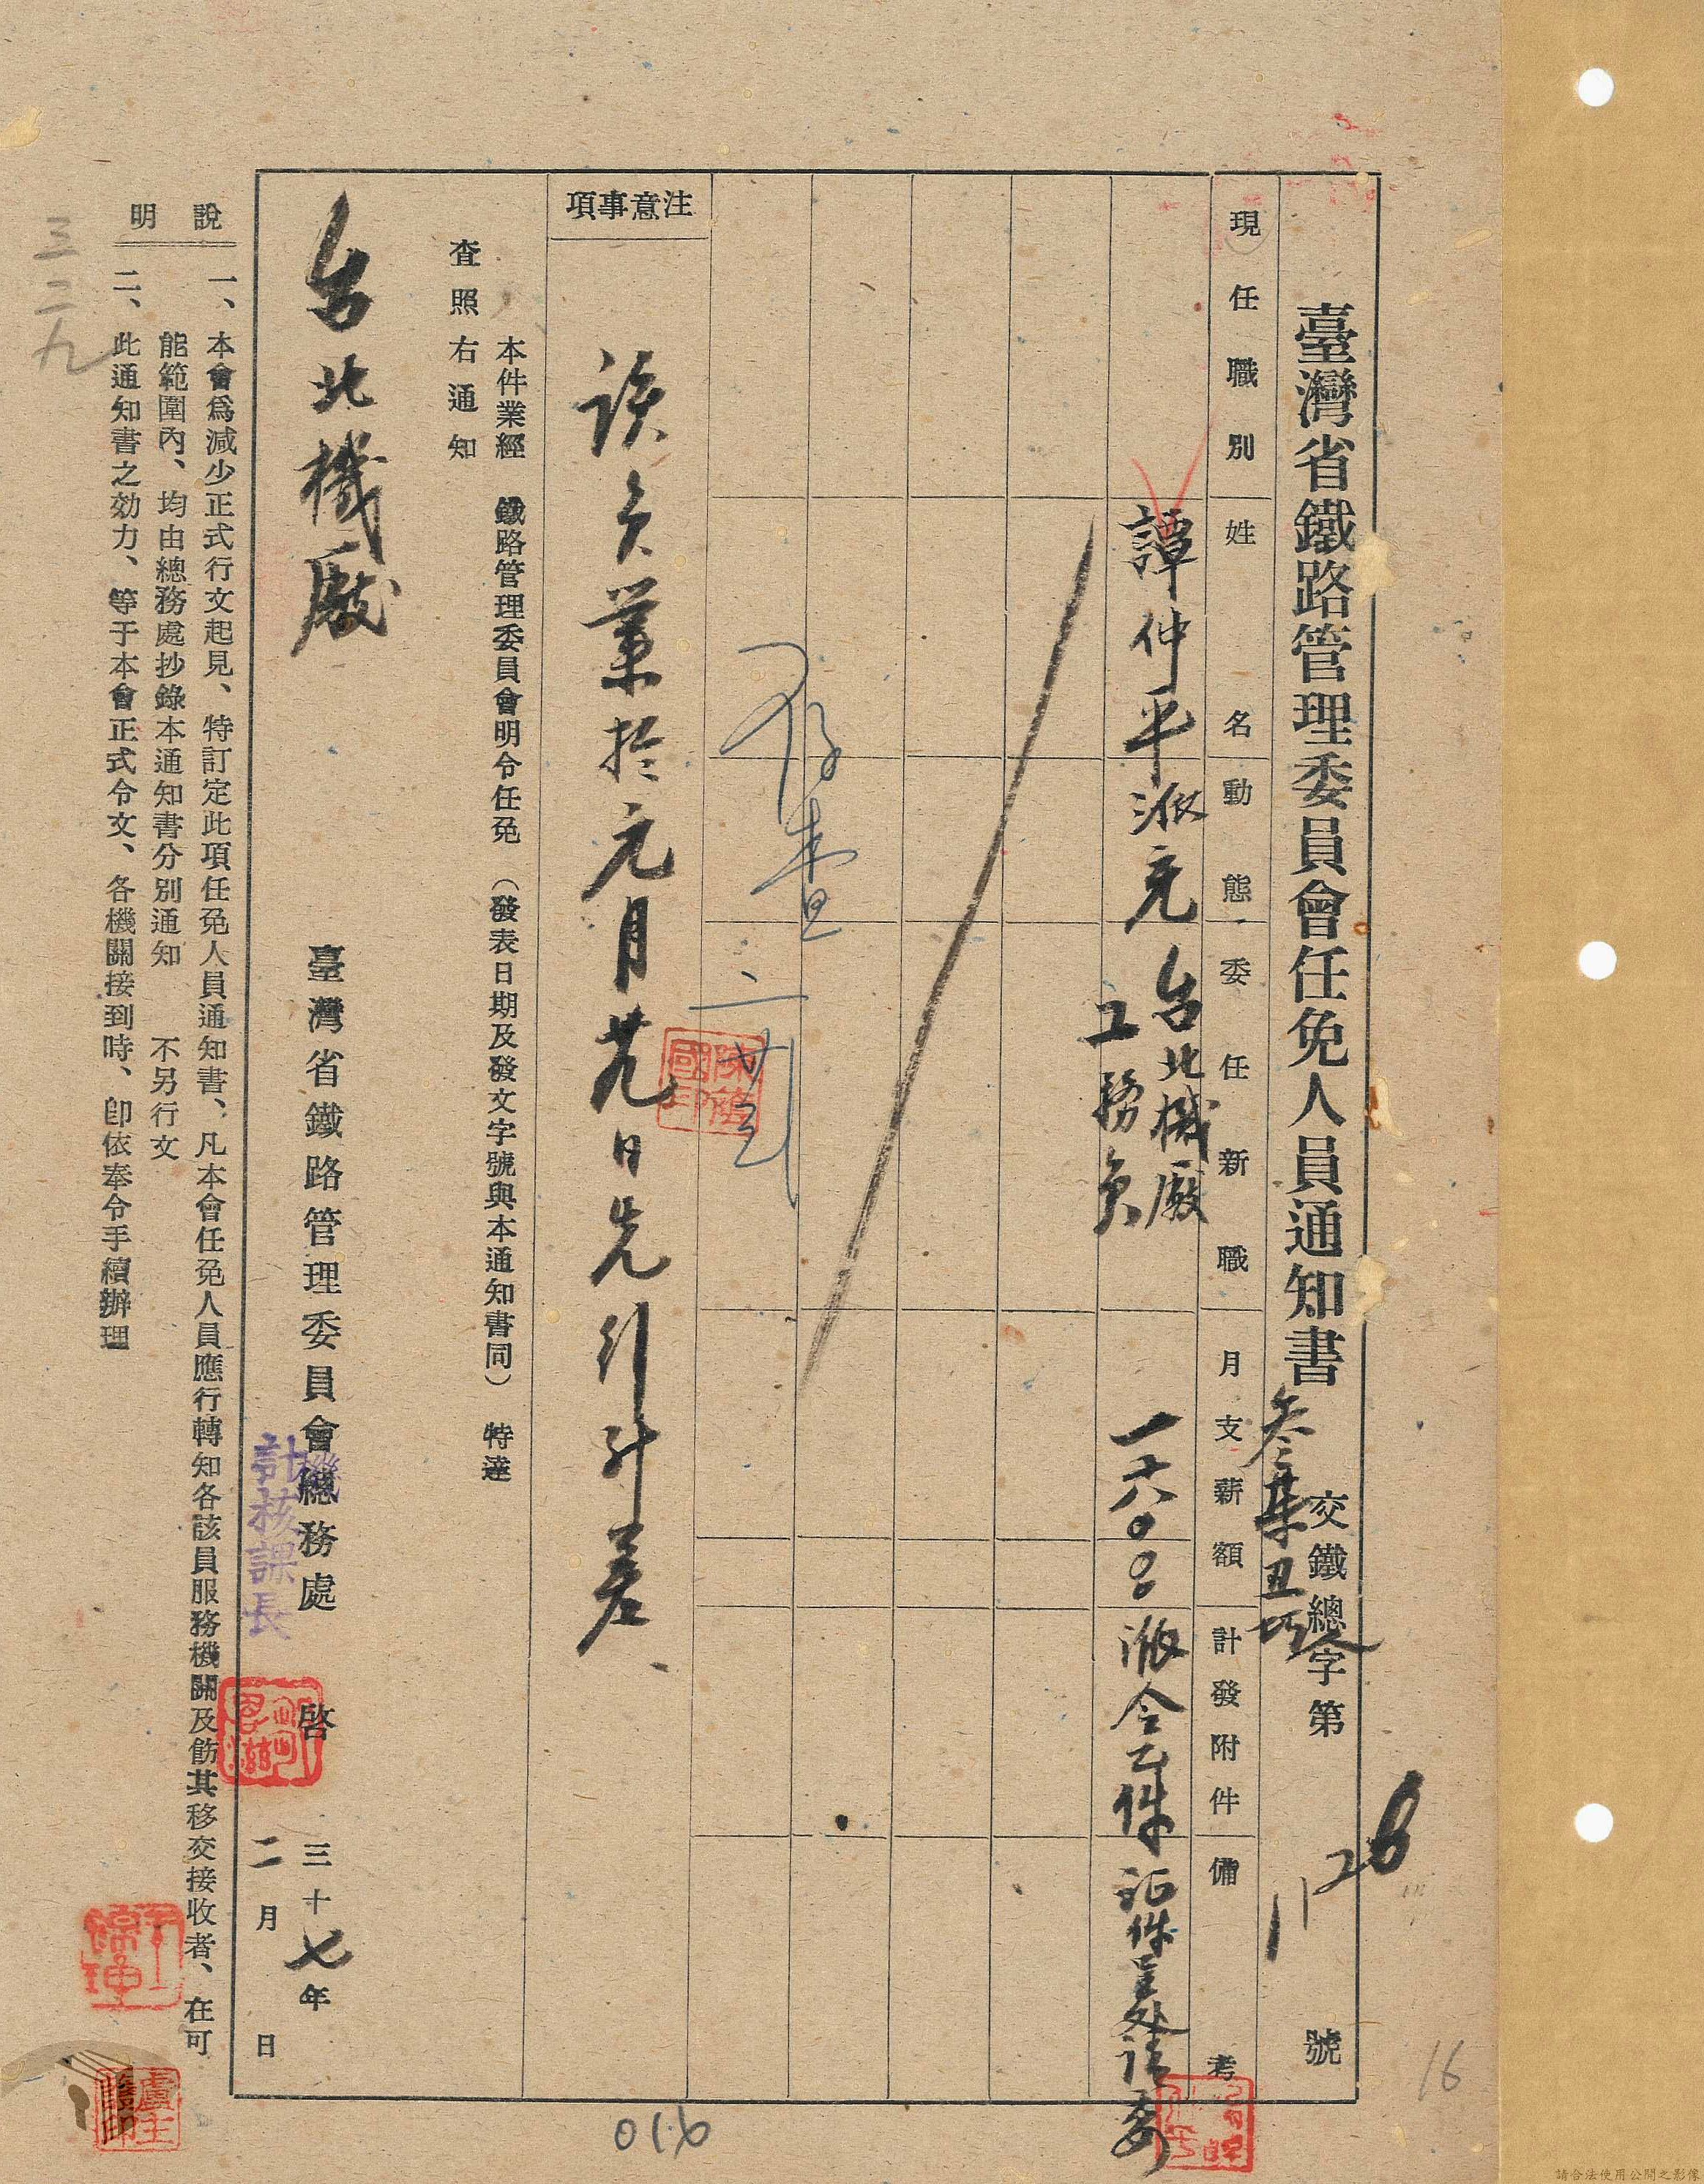 臺灣省鐵路管理委員會任免人員通知書
交鐵總字第
號
現任職別
姓名
動態
委任新職
月支薪額
計發附件
備考
譚仲平
派充
台北機廠
工務員
一六〇〇〇
派令乙件
證件呈处請委
存查
注意事項
該員業於元月廿九日先行升差
本件業經 鐵路管理委員會明令任免(發表日期及發文字號與本通知書同) 特達
查照右通知
台北機廠
臺灣省鐵路管理委員會總務處 啓
計核課長
三十七年
二月 日
說明
一、本會爲減少正式行文起見、特訂定此項任免人員通知書、凡本會任免人員應行轉知各該員服務機關及飭其移交接收者、在可
能範圍內、均由總務處抄錄本通知書分別通知 不另行文
二、此通知書之効力、等于本會正式令文、各機關接到時、卽依奉令手續辦理
三二九
016
16
請合法使用公開之影像